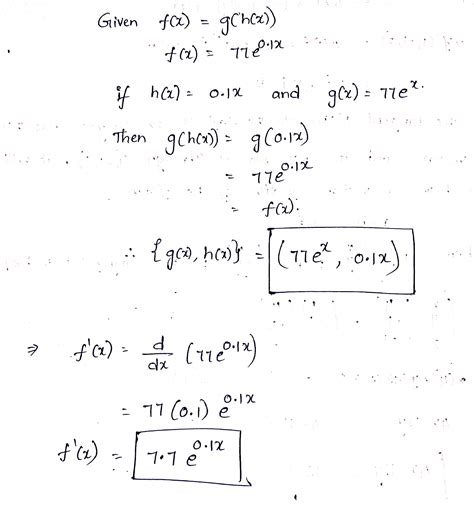 Given f(x) = g(h(x))
f(x) = 77e^0.1x
if h(x) = 0.1x and g(x) = 77e^x.
Then g(h(x)) = g(0.1x)
= 77e^0.1x
= f(x).
∴ {g(x), h(x)} = (77e^x, 0.1x)
⇒ f'(x) = d/dx (77e^0.1x)
= 77(0.1) e^0.1x
f'(x) = 7.7 e^0.1x